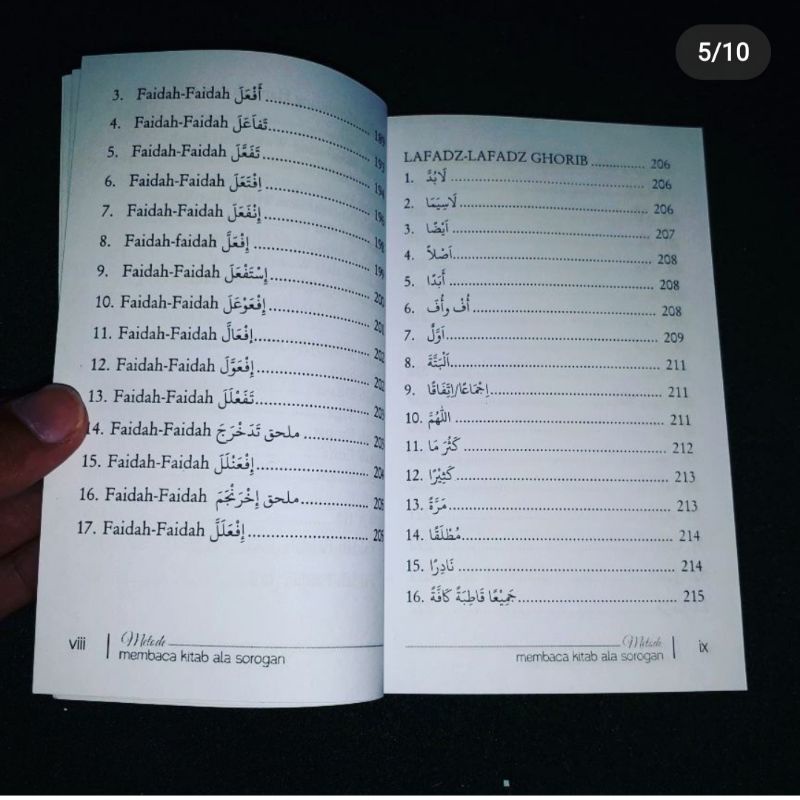 5/10
3. Faidah-Faidah أَفْعَلَ
4. Faidah-Faidah تَفَاعَلَ 189
5. Faidah-Faidah تَفَعَّلَ 193
6. Faidah-Faidah اِفْتَعَلَ 194
7. Faidah-Faidah اِنْفَعَلَ 196
8. Faidah-faidah اِفْعَلَّ 198
9. Faidah-Faidah اِسْتَفْعَلَ 199
10. Faidah-Faidah اِفْعَوْعَلَ 200
11. Faidah-Faidah اِفْعَالَّ 201
12. Faidah-Faidah اِفْعَوَّلَ 202
13. Faidah-Faidah تَفَعْلَلَ
14. Faidah-Faidah ملحق تَدَخْرَجَ
15. Faidah-Faidah اِفْعَنْلَلَ 204
16. Faidah-Faidah ملحق اِخْرَنْجَمَ
17. Faidah-Faidah اِفْعَلَلَّ
viii Metode
membaca kitab ala sorogan
LAFADZ-LAFADZ GHORIB 206
1. لَابُدَّ 206
2. لَاسِيَمَا 206
3. اَيْضًا 207
4. اَصْلاً 208
5. أَبَدًا 208
6. أُفْ وأُفَ 208
7. اَوَّلُ 209
8. اَلْبَتَّةَ 211
9. اِجْمَاعًا/اِتِّفَاقًا 211
10. اَللّٰهُمَّ 211
11. كَثُرَ مَا 212
12. كَثِيْرًا 213
13. مَرَّةً 213
14. مُطْلَقًا 214
15. نَادِرًا 214
16. جَمِيْعًا قَاطِبَةً كَافَّةً 215
Metode ix
membaca kitab ala sorogan